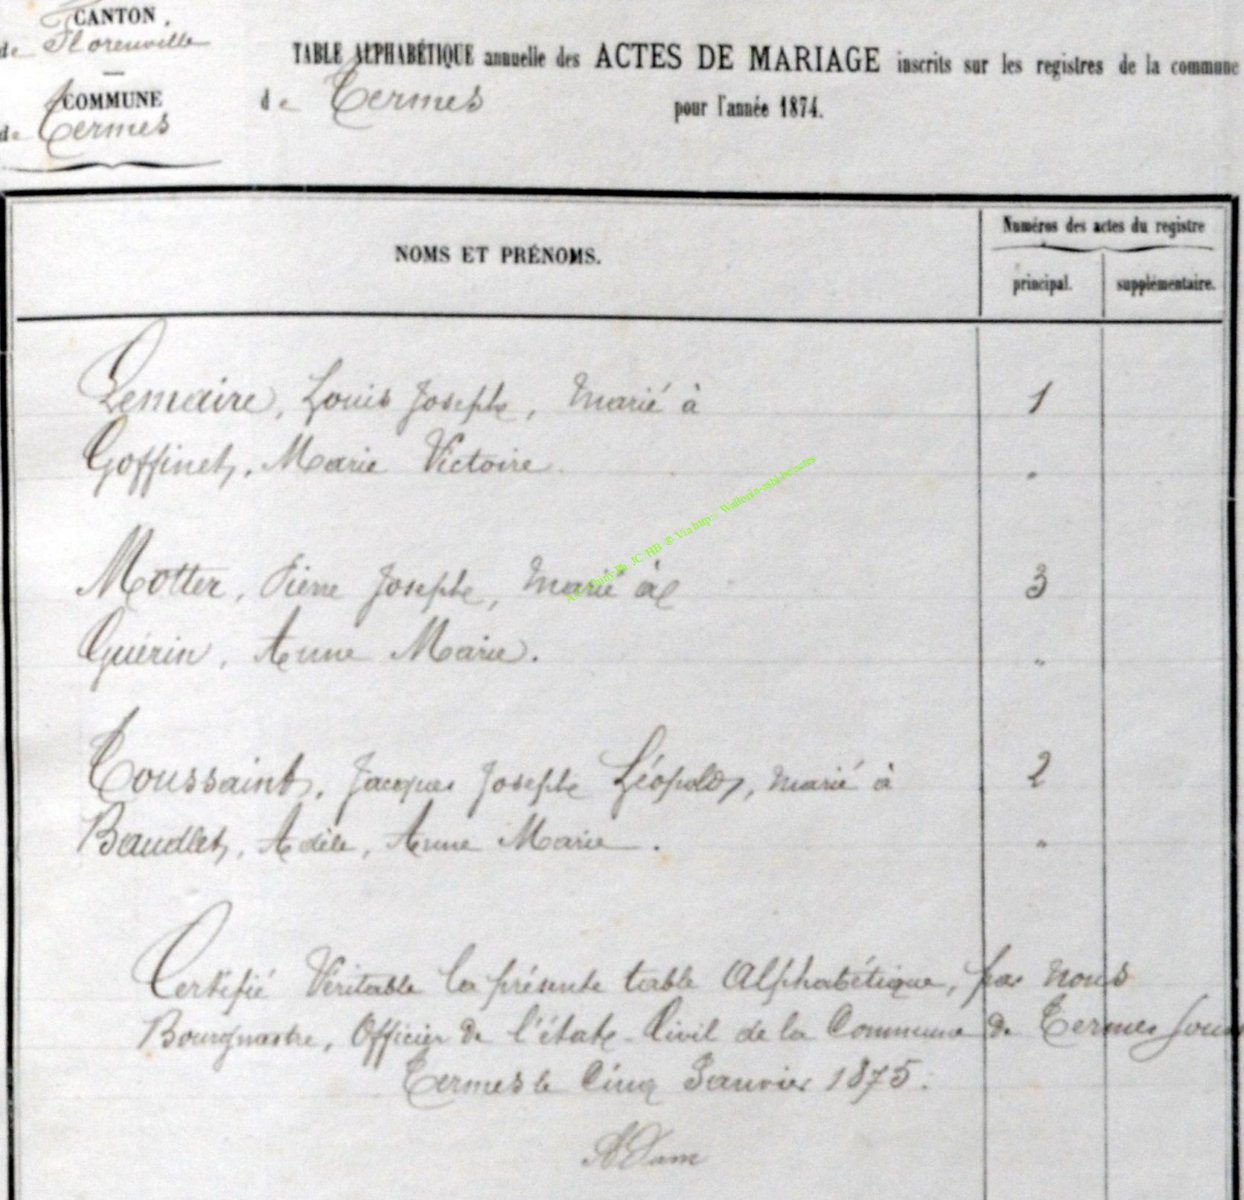 CANTON.
de Florenville
COMMUNE
de Termes
TABLE ALPHABÉTIQUE annuelle des ACTES DE MARIAGE inscrits sur les registres de la commune
de Termes pour l'année 1874.
NOMS ET PRÉNOMS.
Numéros des actes du registre
principal. supplémentaire.
Lemaire, Louis Joseph, marié à 1
Goffinet, Marie Victoire "
Motter, Pierre Joseph, marié à 3
Guérin, Anne Marie. "
Toussaint, Jacques Joseph Léopold, marié à 2
Baudlet, Adèle, Anne Marie. "
Certifié Véritable la présente table Alphabétique, par nous
Bourgmestre, Officier de l'état-Civil de la Commune de Termes
Termes le Cinq Janvier 1875.
Adam